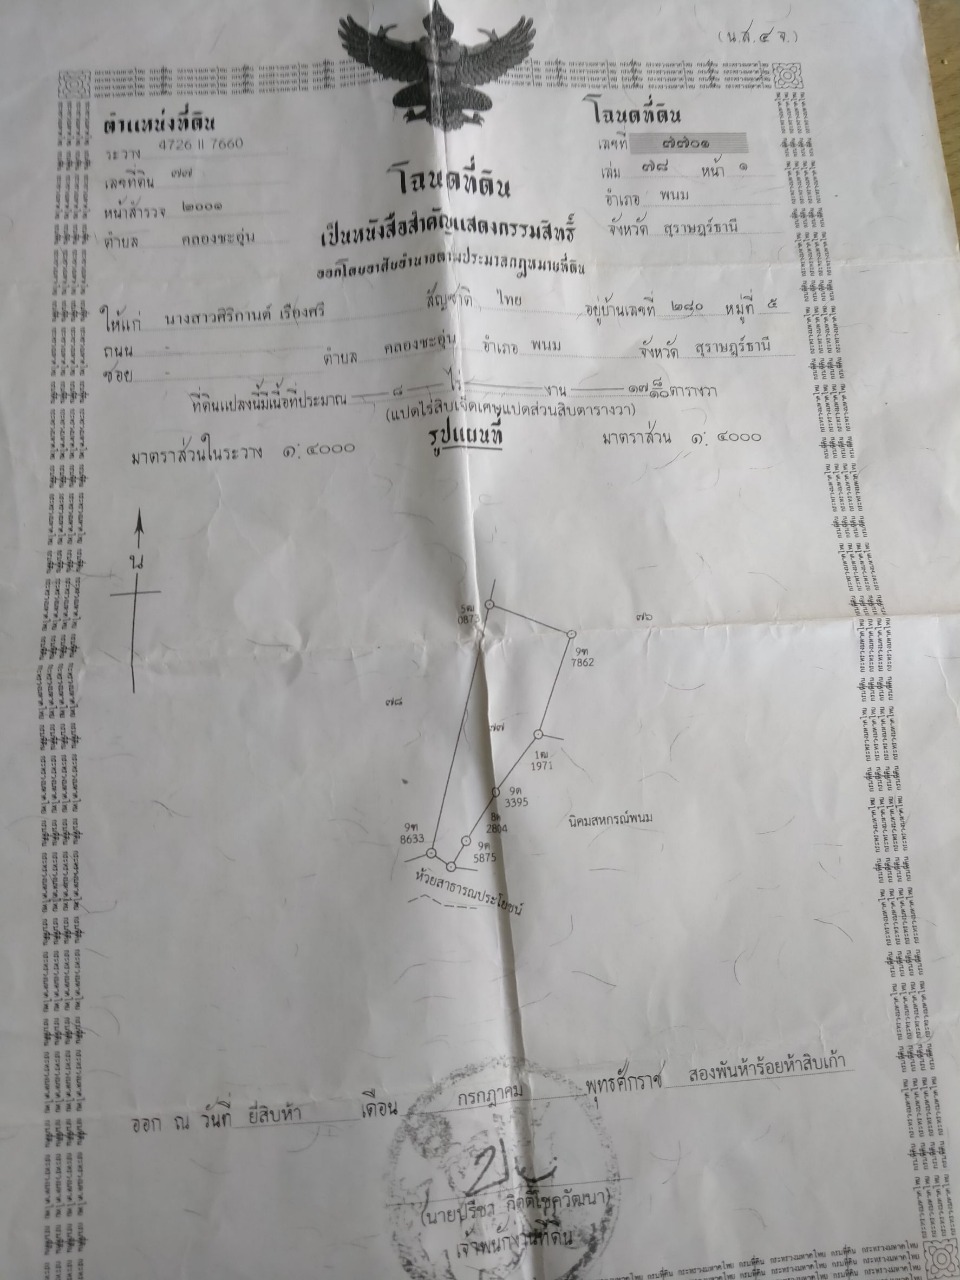 (น.ส.๔ จ.)
ตำแหน่งที่ดิน
ระวาง 4726 II 7660
เลขที่ดิน ๗๗
หน้าสำรวจ ๒๐๐๑
ตำบล คลองชะอุ่น
โฉนดที่ดิน
เลขที่ ๗๗๐๑
เล่ม ๗๘ หน้า ๑
อำเภอ พนม
จังหวัด สุราษฎร์ธานี
โฉนดที่ดิน
เป็นหนังสือสำคัญแสดงกรรมสิทธิ์
ออกโดยอาศัยอำนาจตามประมวลกฎหมายที่ดิน
ให้แก่ นางสาวศิริกานต์ เรืองศรี สัญชาติ ไทย อยู่บ้านเลขที่ ๒๘๐ หมู่ที่ ๕
ถนน - ตำบล คลองชะอุ่น อำเภอ พนม จังหวัด สุราษฎร์ธานี
ซอย -
ที่ดินแปลงนี้มีเนื้อที่ประมาณ ๘ ไร่ งาน ๑๗ ๘/๑๐ ตารางวา
(แปดไร่สิบเจ็ดเศษแปดส่วนสิบตารางวา)
รูปแผนที่
มาตราส่วนในระวาง ๑:๔๐๐๐ มาตราส่วน ๑:๔๐๐๐
น
5ฒ
0873
๗๖
9ฑ
7862
๗๘
๗๗
1ฒ
1971
9ด
3395
นิคมสหกรณ์พนม
8ด
2804
9ฑ
8633
9ด
5875
ห้วยสาธารณประโยชน์
ออก ณ วันที่ ยี่สิบห้า เดือน กรกฎาคม พุทธศักราช สองพันห้าร้อยห้าสิบเก้า
(นายปรีชา กิตติโชควัฒนา)
เจ้าพนักงานที่ดิน
กรมที่ดิน กระทรวงมหาดไทย